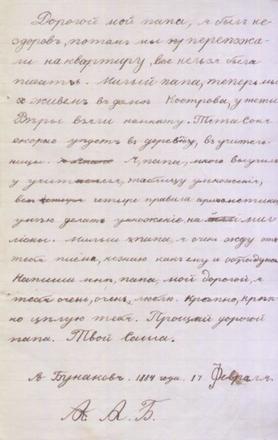 Дорогой мой папа, я был не-
здоров, потом мы
ли на квартиру, нельзя было
писать. Милый папа, теперь мы
живем в доме Кострова, у тети
Веры взяли комнату. Тетя Соня
скоро уедет в деревню, в учитель-
ницы. Я, папа, много выучил
у учителя, таблицу умножения,
все четыре правила арифметики
умею делать умножение на мил-
лионы. Милый папа, я очень жду от
тебя письма,
Напиши мне, папа, мой дорогой, я
тебя очень, очень люблю. Крепко, креп-
ко целую тебя. Прощай дорогой
папа. Твой Саша.
А. Бунаков. 1884 года. 17 Февраля.
А. А. Б.